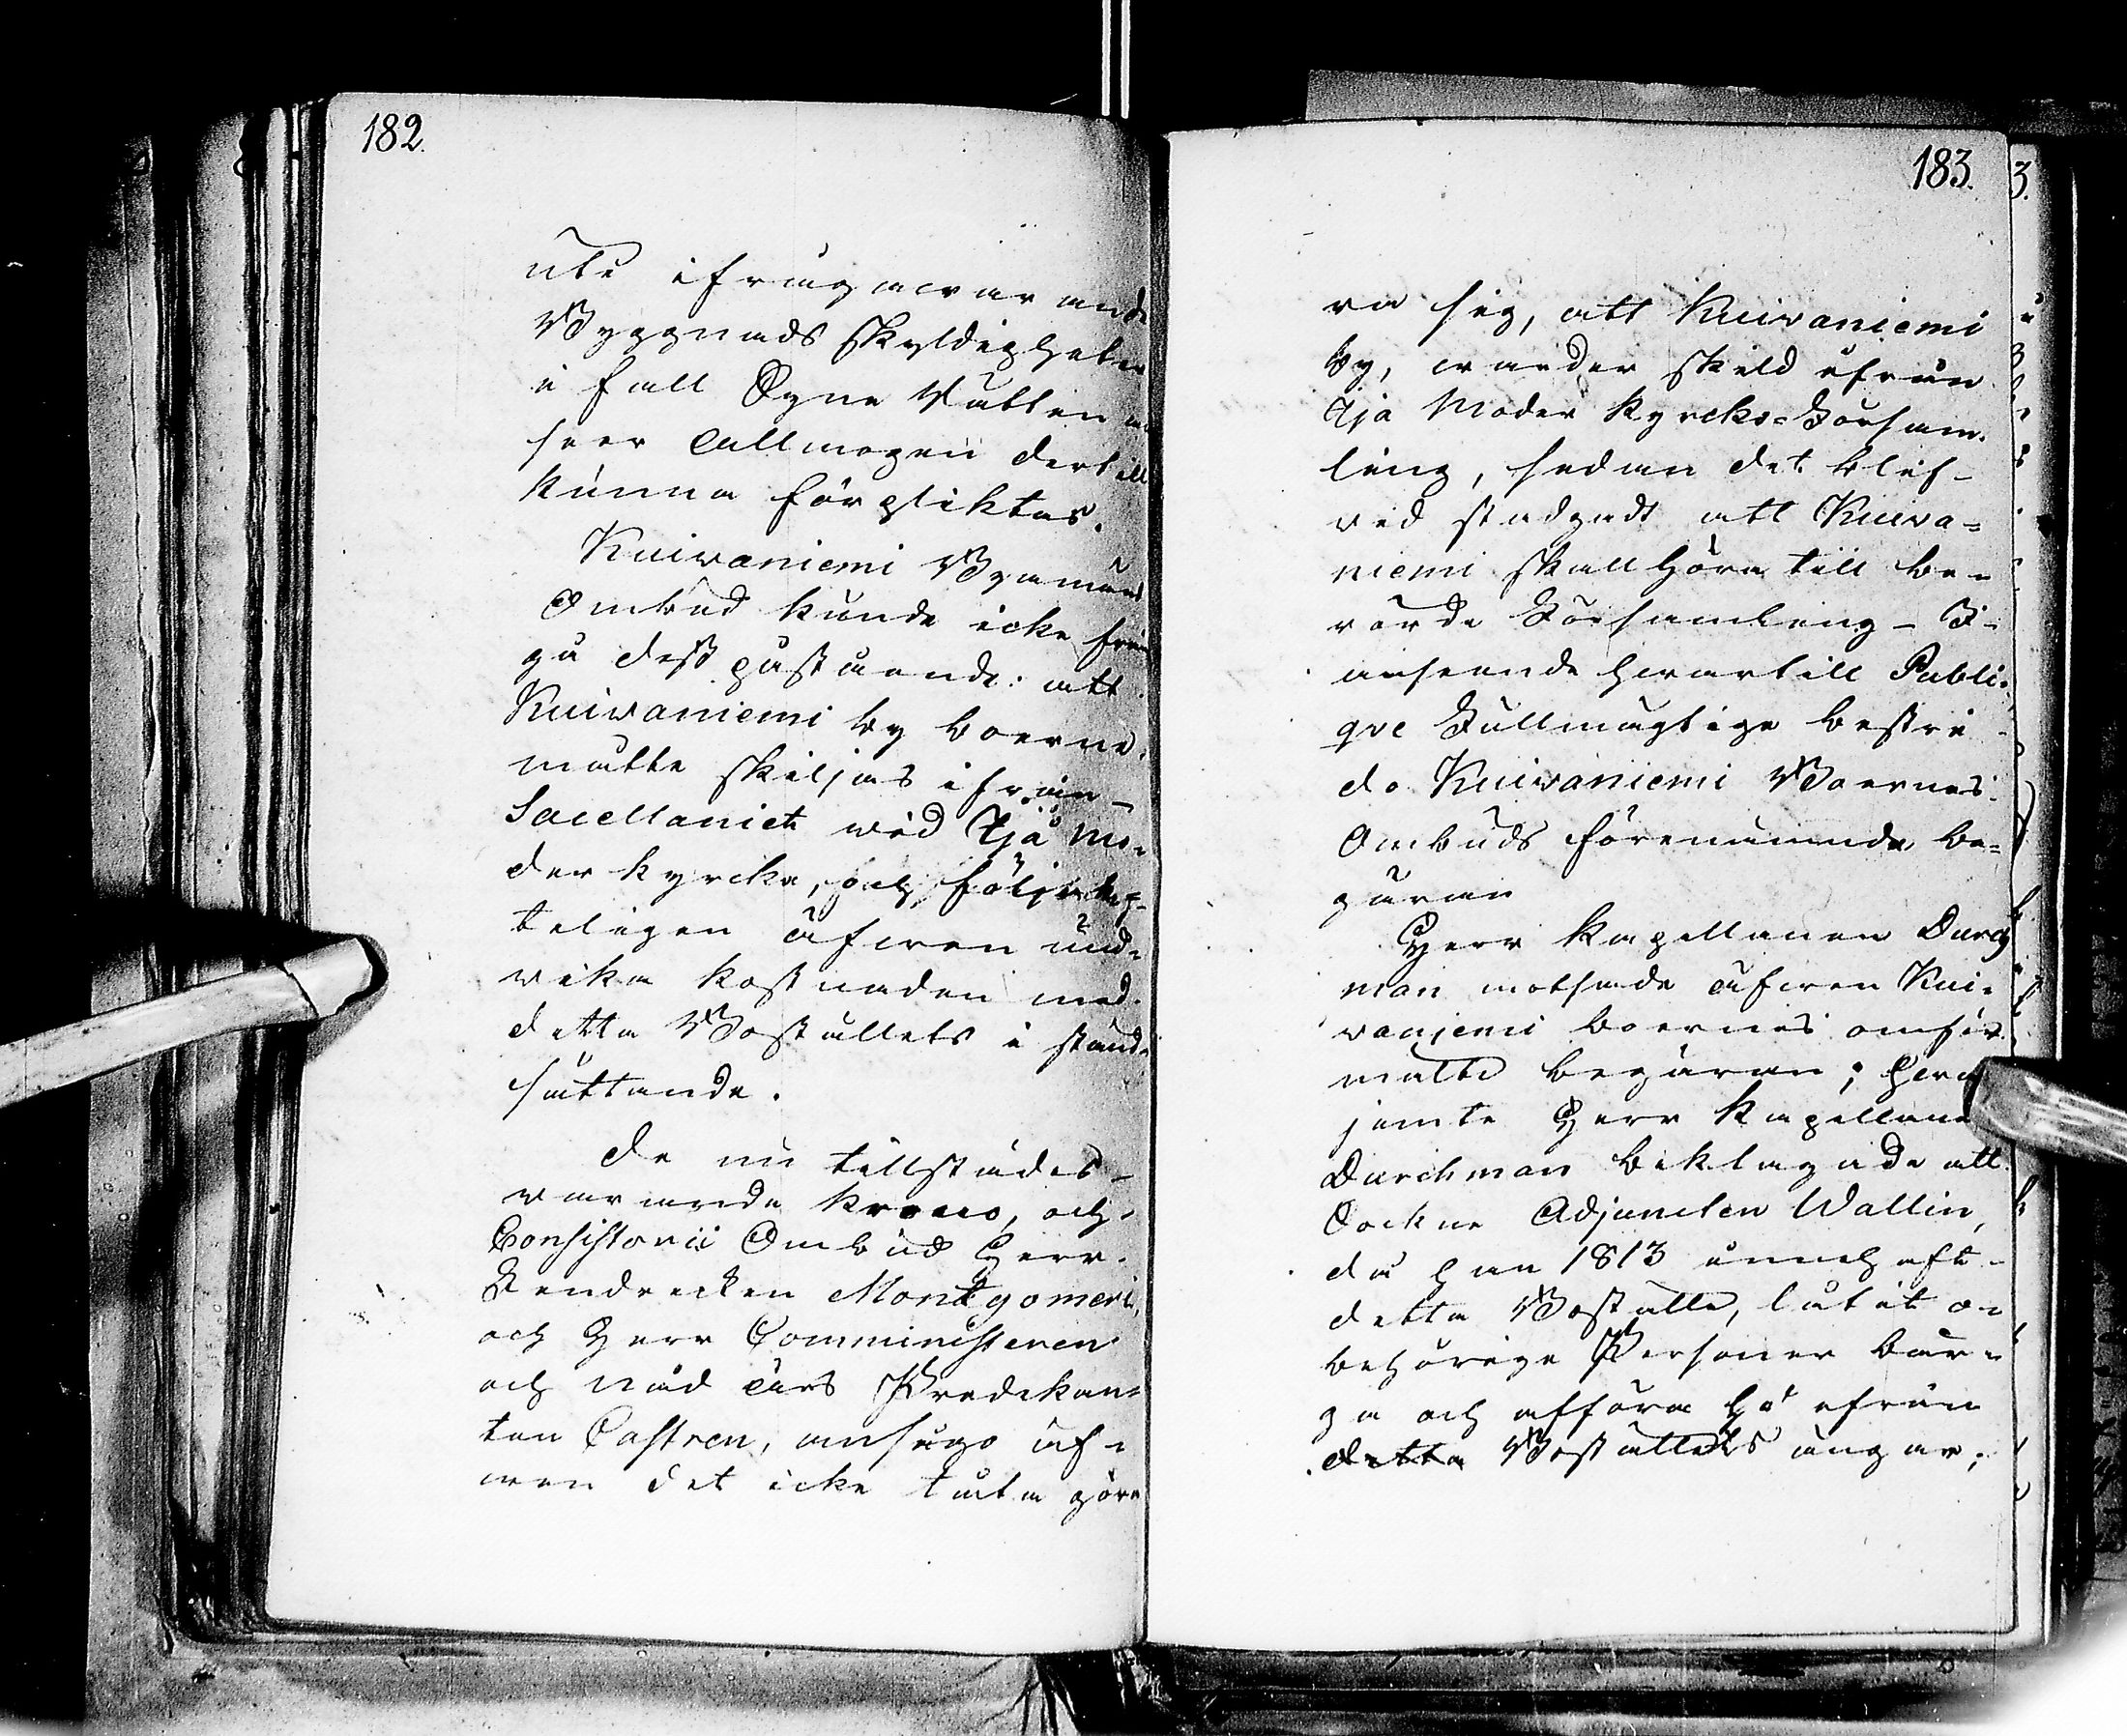 182.
ute ifrågawarande
Byggnads skyldigheten
i fall Ägne Rätten an
seer Allmogen dertill
kunna förpliktas.
Kuivaniemi Byamäns
Ombud kunde icke från
gå dess påstående: att
Kuivaniemi by boerne
måtte skiljas ifrån
Sacellaniet wid Ijå mo-
der kyrcka, och följackt-
teligen äfwen und-
wika kostnaden med
detta Boställets i stånd
sättande.
De nu tillstädes-
warande krono, och
Consistorii Ombud Herr
Lendricken Montgomeri,
och Herr Comministeren
och nåd års Predikan-
ten Castren, ansågo äf-
wen det icke låta göra
183.
ra sig, att Kuivaniemi
by, warder skild ifrån
Ijå Moder kyrcko-Försam-
ling, sedan det blif-
vid stadgadt att Kuiva-
niemi skall höra till be-
rörde Församling - I
anseende hwartill Publi-
qve Fullmägtige bestri-
do Kuivaniemi Boernes
Ombuds förenämnde be-
gäran
Herr Kapellanen Durch
man motsade äfwen Kui-
vaniemi boernes omför-
mälte begäran; hwar
jemte Herr Kapellanen
Durchman beklagade att
Sockne Adjuncten Wallin,
då han 1813 innehaft
detta Boställe, låtit o-
behörige Personer bär-
ga och afföra hö ifrån
detta Boställets ängar;